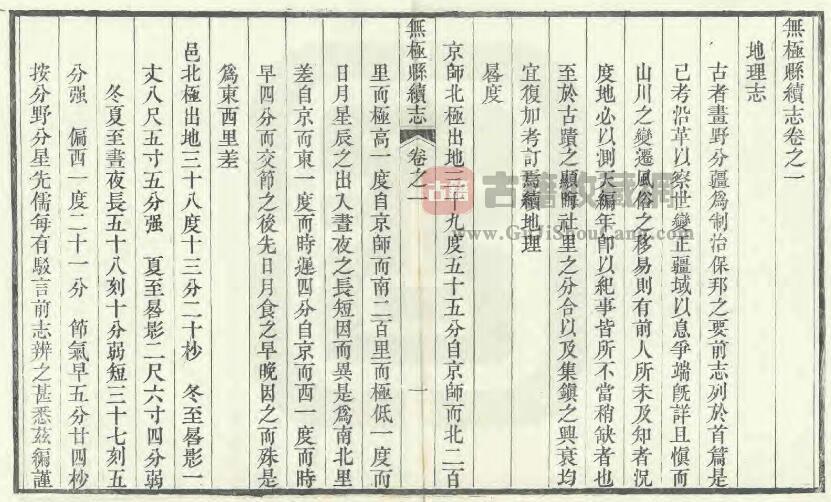 無極縣續志卷之一
地理志
古者畫野分疆爲制治保邦之要前志列於首篇是
已考沿革以察世變正疆域以息爭端旣詳且愼而
山川之變遷風俗之移易則有前人所未及知者況
度地必以測天編年卽以紀事皆所不當稍缺者也
至於古蹟之顯晦社里之分合以及集鎭之興衰均
宜復加考訂焉續地理
晷度
京師北極出地三十九度五十五分自京師而北二百
無極縣續志 卷之一 一
里而極高一度自京師而南二百里而極低一度而
日月星辰之出入晝夜之長短因而異是爲南北里
差自京而東一度而時遲四分自京而西一度而時
早四分而交節之後先日月食之早晚因之而殊是
爲東西里差
邑北極出地三十八度十三分二十秒 冬至晷影一
丈八尺五寸五分强 夏至晷影二尺六寸四分弱
冬夏至晝夜長五十八刻十分弱短三十七刻五
分强 偏西一度二十一分 節氣早五分廿四秒
按分野分星先儒每有駁言前志辨之甚悉茲編謹
古籍
古籍收藏网
www.GuJiShouCang.com